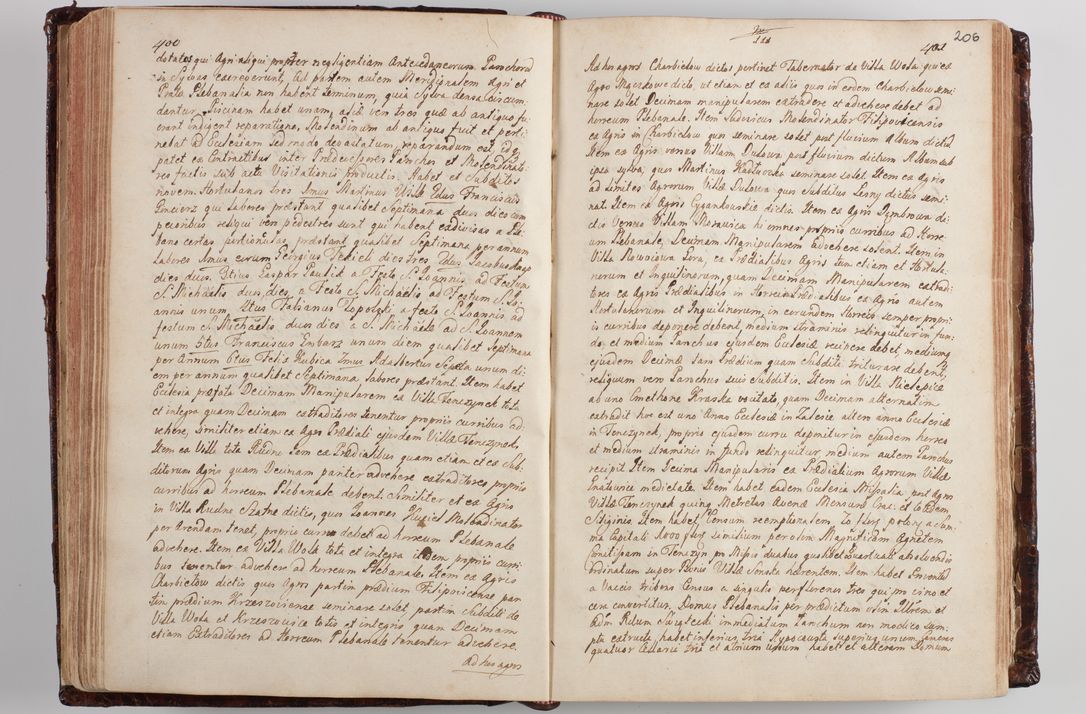 400
dotatos qui Agri aliqui propter negligentiam Antecedaneorum Parochorum
in Sylvas excreverunt, Ad partem autem Meridionalem Agri et
Prata Plebanalia non habent terminum, quia Sylva densa circum
dantur. Piscinam habet unam, adiè ven tres quæ ab antiquo fu
erant indigent reparatione, Molendinum ab antiquo fuit et perti
nebat ad Ecclesiam sed modo devastatum, reparandum est id q.
patet ex Contractibus inter Prædecessores Parochos et Molendinato
res factis sub acta Visitationis productis. Habet et Subditos
novem. Hortulanos tres Imus Martinus 2dus Franciscus
qui labores præstant qualibet Septimana duos dies cum
pecoribus reliqui vero pedestres sunt qui habent
bano certas portiones, præstant qualibet Septimana per annum
labores Imus dies tres 2dus
dies duos. 3tius Gaspar Pawlik a Festo S. Joannis ad Festum
S. Michaëlis duos dies, a Festo S. Michaëlis ad Festum S. Jo
annis unum 4tus Fabianus a Festo S. Joannis ad
festum S. Michaëlis duos dies a S. Michaële ad S. Joannem
unum 5tus Franciscus unum diem qualibet Septimana
per Annum 6tus Felix Kubica 7mus Adalbertus unum di
em per annum qualibet Septimana labores præstant. Item habet
Ecclesia præfata Decimam Manipularem ex Villa Tenczynek tota
et integra quam Decimam extraditores tenentur propriis curribus ad
vehere, similiter etiam ex Agro Prædiali ejusdem Villæ Tenczynek,
Item ex Villa tota Rudno tam ex Prædialibus quam etiam et ex Sub
ditorum Agris quam Decimam pariter advehere extraditores propriis
curribus ad horreum Plebanale debent. Similiter et ex Agris
in Villa Rudno Szatne dictis, quos Joannes Molendinator
per Arendam tenet, proprio curru debet ad horreum Plebanale
advehere. Item ex Villa Wola tota et integra itidem propriis curri
bus tenentur advehere ad horreum Plebanale. Item ex Agris
Charbielow dictis quos Agros partim prædium Filipovicense par
tim prædium Krzeszovicense seminare solet partim Subditi de
Villa Wola et Krzeszovice totis et integris quam Decimam
etiam Extraditores ad Horreum Plebanale tenentur advehere.
ad hos agros
111
401
206
Ad hos agros Charbielow dictos pertinet Tabernator de Villa Wola qui ex
Agro dicto, ut etiam et ex aliis quos in eodem Charbielow semi
nare solet Decimam manipularem extradere et advehere debet ad
horreum Plebanale. Item Ludovicus Molendinator Filipovicensis
ex Agris in Charbielow quos seminare solet post fluvium Album dictum
Item ex Agris versus Villam Dulowa post fluvium dictum Album sub
ipsa sylva, quos Martinus seminare solet. Item ex Agris
ad limites Agrorum Villæ Dulowa quos Subditus Lesny dictus semi
nat. Item ex Agris Cygankowskie dictis. Item ex Agris Dąmbrowa di
ctis versus Villam hi omnes propriis curribus ad Horre
um Plebanale Decimam Manipularem advehere solent. Item in
Villa Nowojowa Gora, ex Prædialibus Agris tum etiam et Hortula
norum et Inquilinorum, quam Decimam Manipularem extradi
tores ex Agris Prædialibus in Horreis Prædialibus ex Agris autem
Hortulanorum et Inquilinorum, in eorundem Horreis semper propri
is curribus deponere debent, medium straminis relinquitur in fun
do, et medium Parochus ejusdem Ecclesiæ recipere debet medium
ejusdem Decimæ tam Prædium quam Subditi triturare debent,
reliquum vero Parochus suis Subditis. Item in Villa Nielepice
ab uno Cmethone Kraska vocitato, quam Decimam alternatim
extradit hoc est uno Anno Ecclesiæ in Zalesie altero anno Ecclesiæ
in Tenczynek, proprio ejusdem curru deponitur in ejusdem horreo
et medium straminis in fundo relinquitur medium autem Parochus
recipit. Item Decima Manipularis ex Prædialium Agrorum Villæ
medietate. Item habet eadem Ecclesia Missalia post Agros
Villæ Tenczynek quinq Metretas Avenæ Mensuræ Crac: et totidem
Siliginis. Item habet Censum reemptionalem 70 flor: polon: a sum
ma Capitali 1000 flor: similium per olim Magnificam Agnetem
in Tenczyn pro Missis duabus qualibet absolvendis
ordinatum super Bonis Villæ Sanka hærentem. Item habet Proventus
a Vaccis triboro Census a singulis per florenos tres qui pro vino et
cera convertitur. Domus Plebanalis per prædictum olim Illrem et
Adm: Rdum immediatum Parochum non modico sum
ptu extructa, habet inferius tria Hypocausta superius unum, Cameras
quatuor Cellaria tria et atrium unum habet et alteram Domum